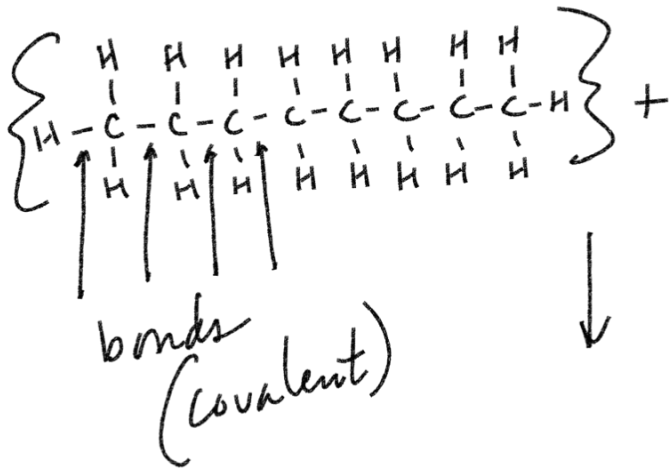 H H H H H H H H
{ H - C - C - C - C - C - C - C - C - H } +
H H H H H H H H
bonds
(covalent)